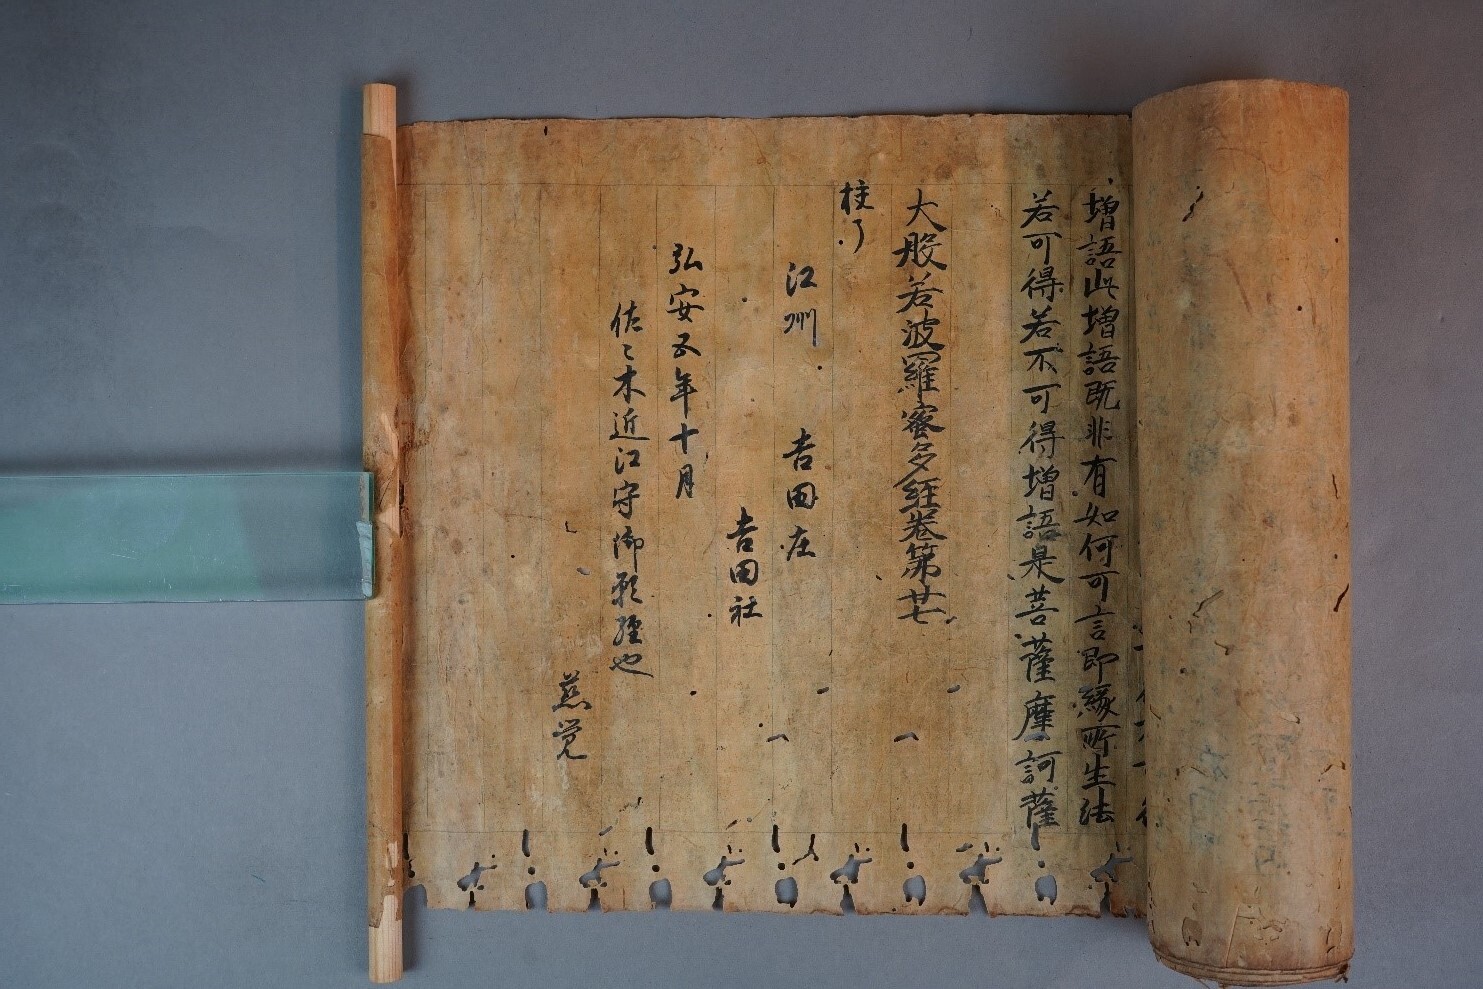 増語此増語既非有如何可言即縁所生法
若可得若不可得増語是菩薩摩訶薩
大般若波羅蜜多経巻第廿七
校了
江州 吉田庄
吉田社
弘安五年十月
佐〻木近江守御願経也
慈覚